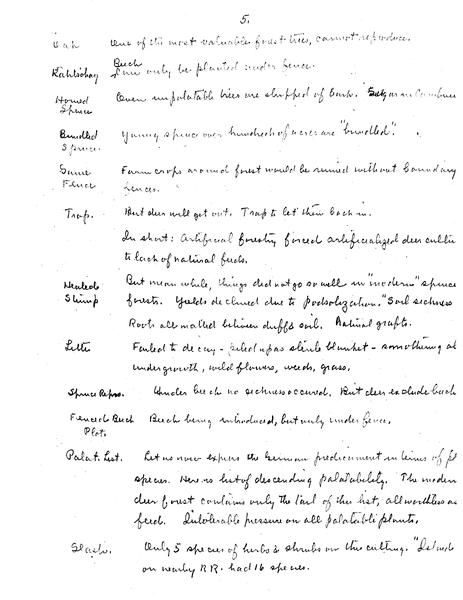 5.
Oak One of the most valuable forest trees, cannot reproduce.
Kahlschlag Beech can only be planted under fence.
Horned Spruce Even unpalatable trees are stripped of bark.
Bundled Spruce Young spruce over hundreds of acres are "bundled".
Game Fence Farm crops around forest would be ruined without boundary
fences.
Trap. But deer will get out. Trap to let them back in.
In short: Artificial forestry forced artificialized deer
to lack of natural feeds.
Stump But mean while, things did not go so well in "modern" spruce
forests. Yields declined due to podsolization. "Soil sickness
Roots all matted between duff & soil. Natural grafts.
Litter Failed to decay - piled up as sterile blanket - smothering
undergrowth, wild flowers, weeds, grass.
Spruce Repro. Under beech no sickness occured. But deer exclude beech
Fenced Beech Plot. Beech being introduced, but only under fence.
Palat. List. Let us now express the German predicament in terms of
species. Here is list of descending palatability. The modern
deer forest contains only the tail of this list, all worthless as
feed. Intolerable pressure on all palatable plants.
Slash. Only 5 species of herbs & shrubs on this cutting.
on nearby R.R. had 16 species.